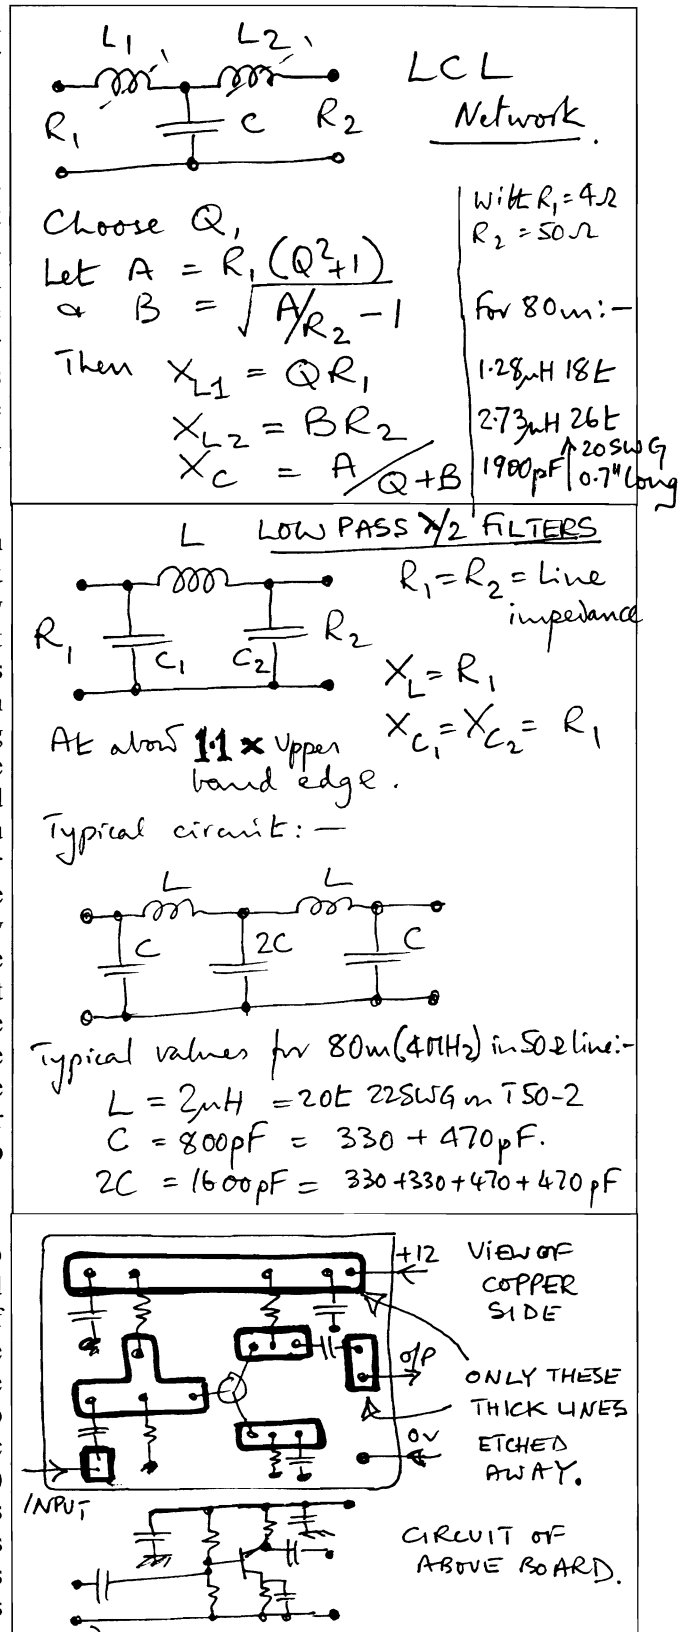 L1 L2
LCL
Network.
R1 C R2
Choose Q,
Let A = R1 (Q²+1)
& B = √(A/R2 - 1)
Then XL1 = QR1
XL2 = BR2
XC = A/Q+B
With R1 = 4Ω
R2 = 50Ω
For 80m:-
1.28μH 18t
2.73μH 26t
1900pF
↑20SWG
0.7" long
LOW PASS λ/2 FILTERS
L
R1 = R2 = Line
impedance
R1 C1 C2 R2
XL = R1
XC1 = XC2 = R1
At about 1.1 x upper
band edge.
Typical circuit:-
L L
C 2C C
Typical values for 80m (4MHz) in 50Ω line:-
L = 2μH = 20t 22SWG on T50-2
C = 800pF = 330 + 470pF.
2C = 1600pF = 330+330+470+470pF
+12
VIEW OF
COPPER
SIDE
O/P
ONLY THESE
THICK LINES
ETCHED
AWAY.
0v
INPUT
CIRCUIT OF
ABOVE BOARD.